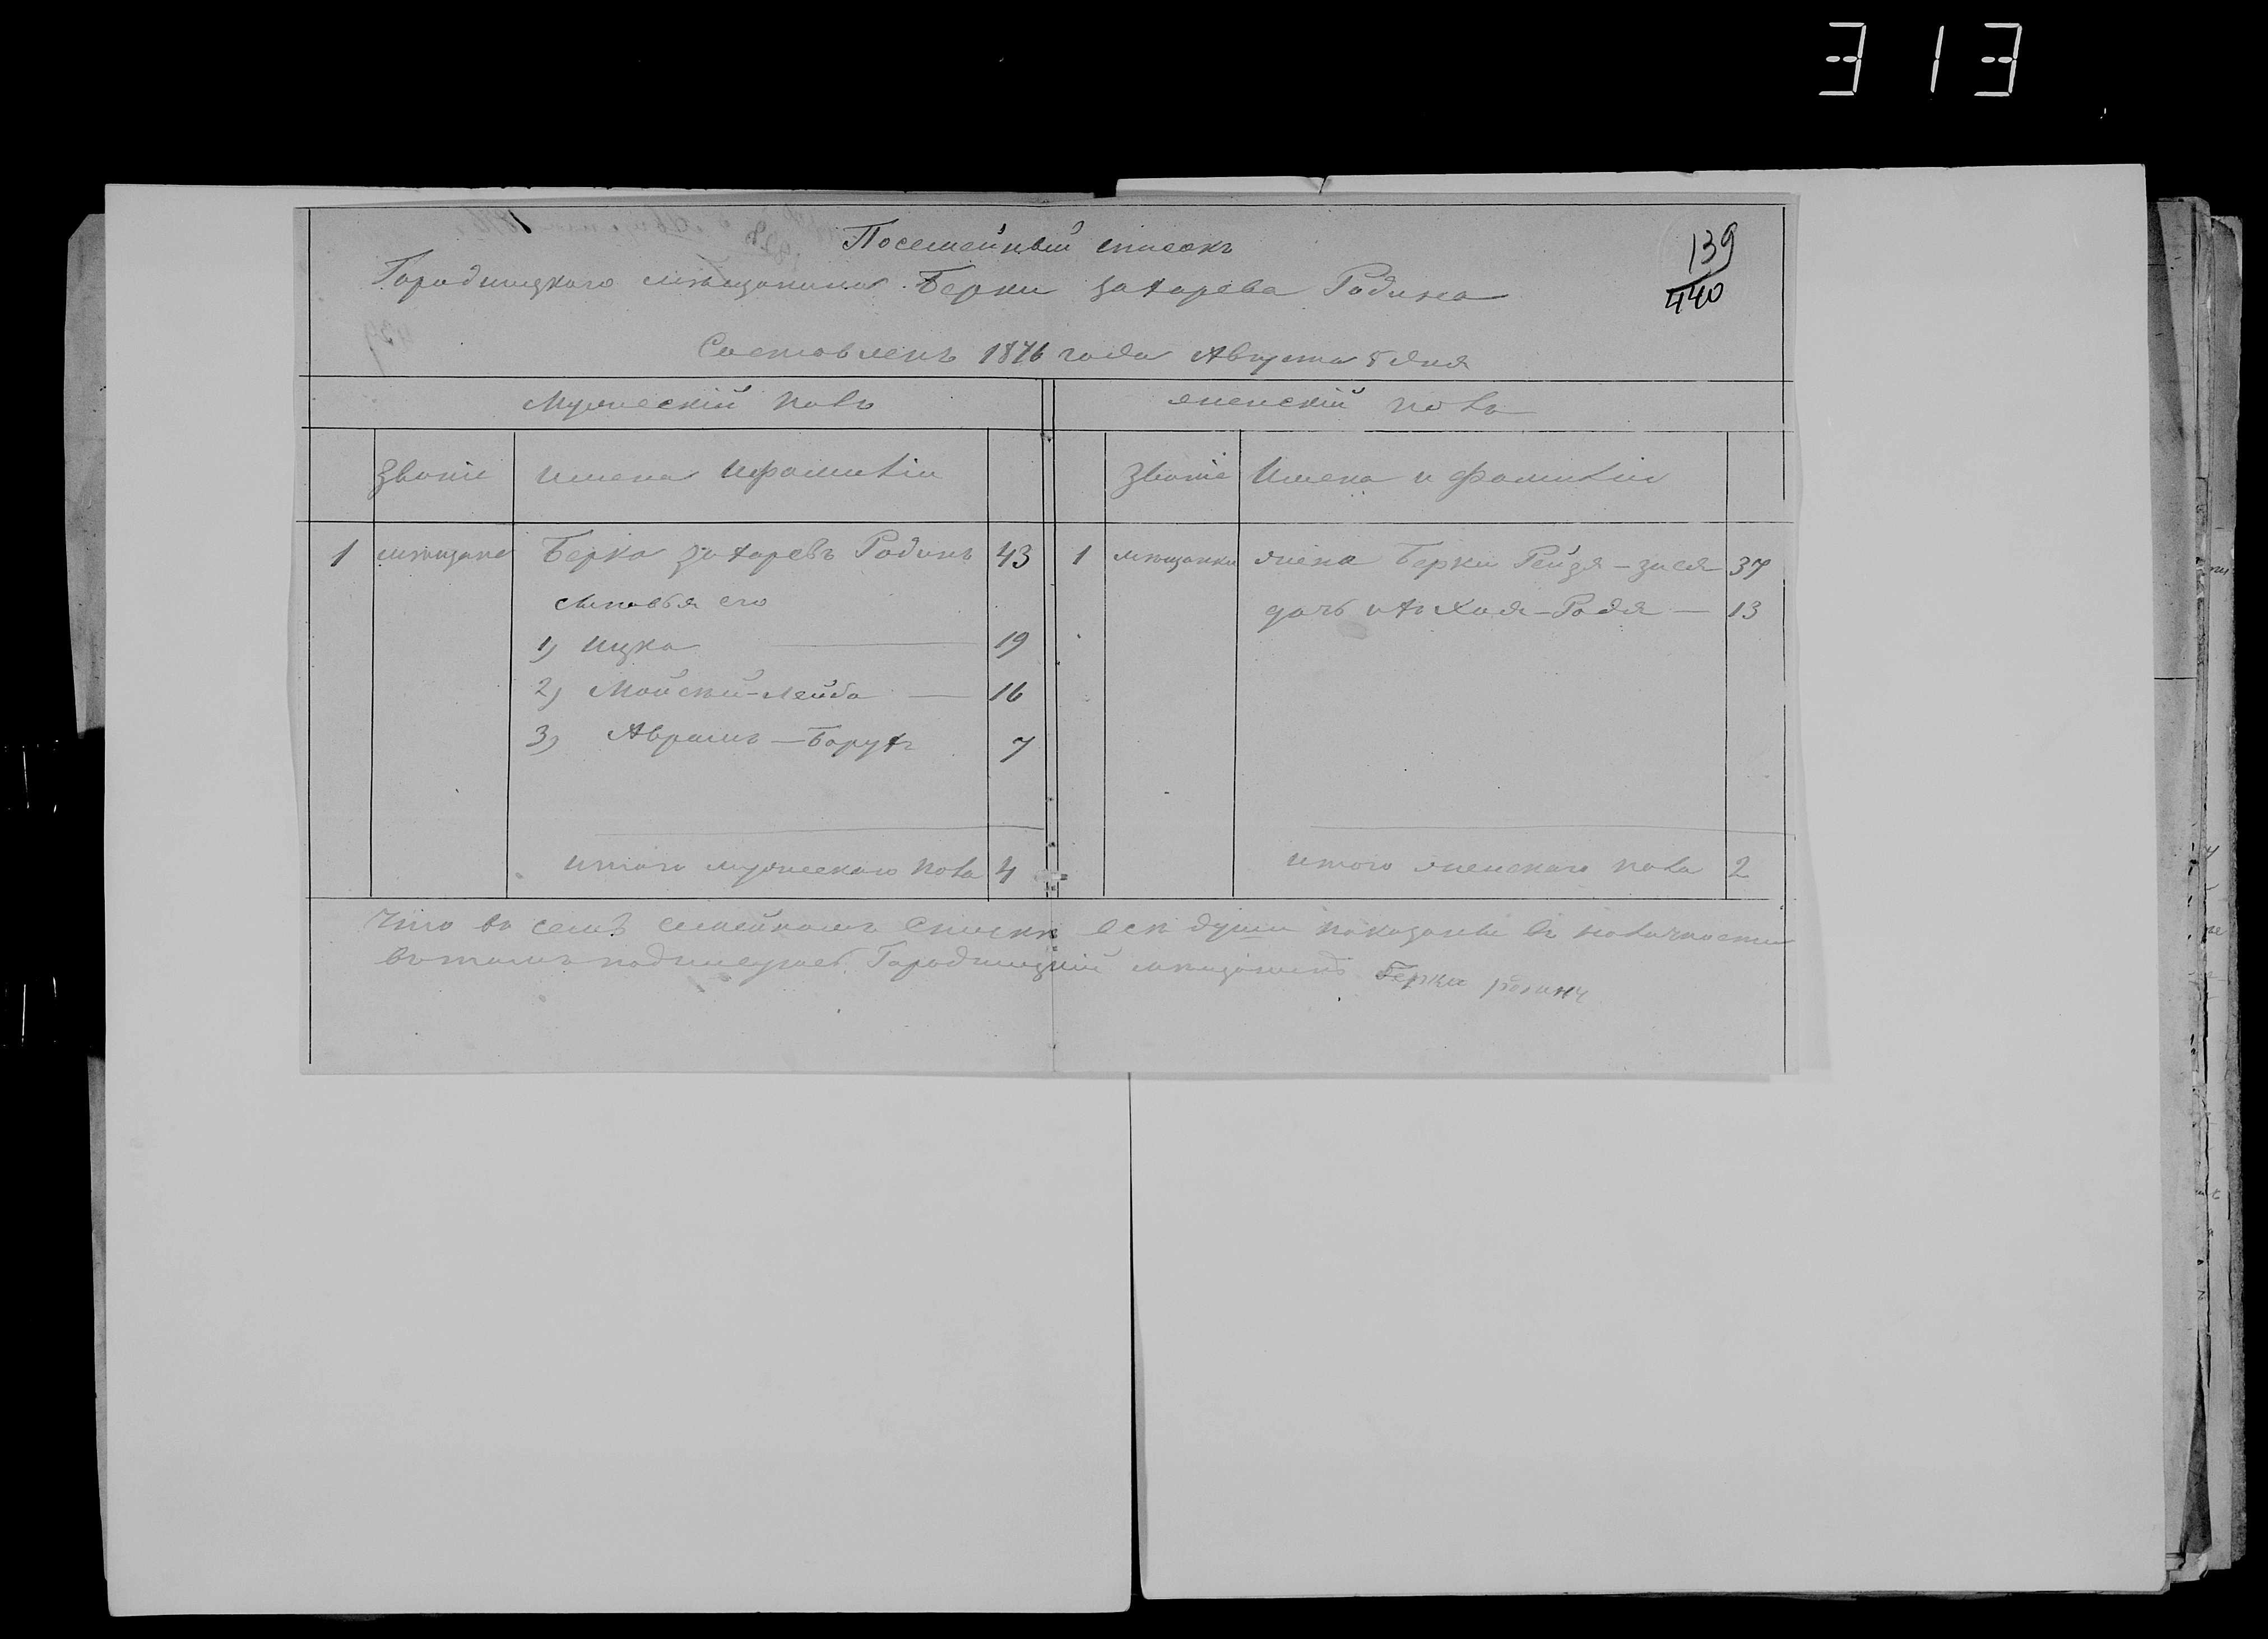 313
139
440
Посемейный списокъ
Городищкого мѣщанина Берки Захарева Родина
Составленъ 1876 года Августа 5 дня
Мужескій полъ
женскій полъ
Званіе
Имена и фамиліи
Званіе
Имена и фамиліи
1 мѣщане Берка Захаревъ Родинъ 43
сыновья его
1) Ицка 19
2) Мойсей-Лейба 16
3) Аврамъ-Борухъ 7
итого мужескаго пола 4
1 мѣщанки жена Берки Рейзя-Зися 37
дочь ихъ Хая-Родя 13
итого женскаго пола 2
Что въ семъ семейномъ Спискѣ всѣ души показаны въ наличности
въ томъ подписуюсь Городищкій мѣщанинъ Берка родинъ